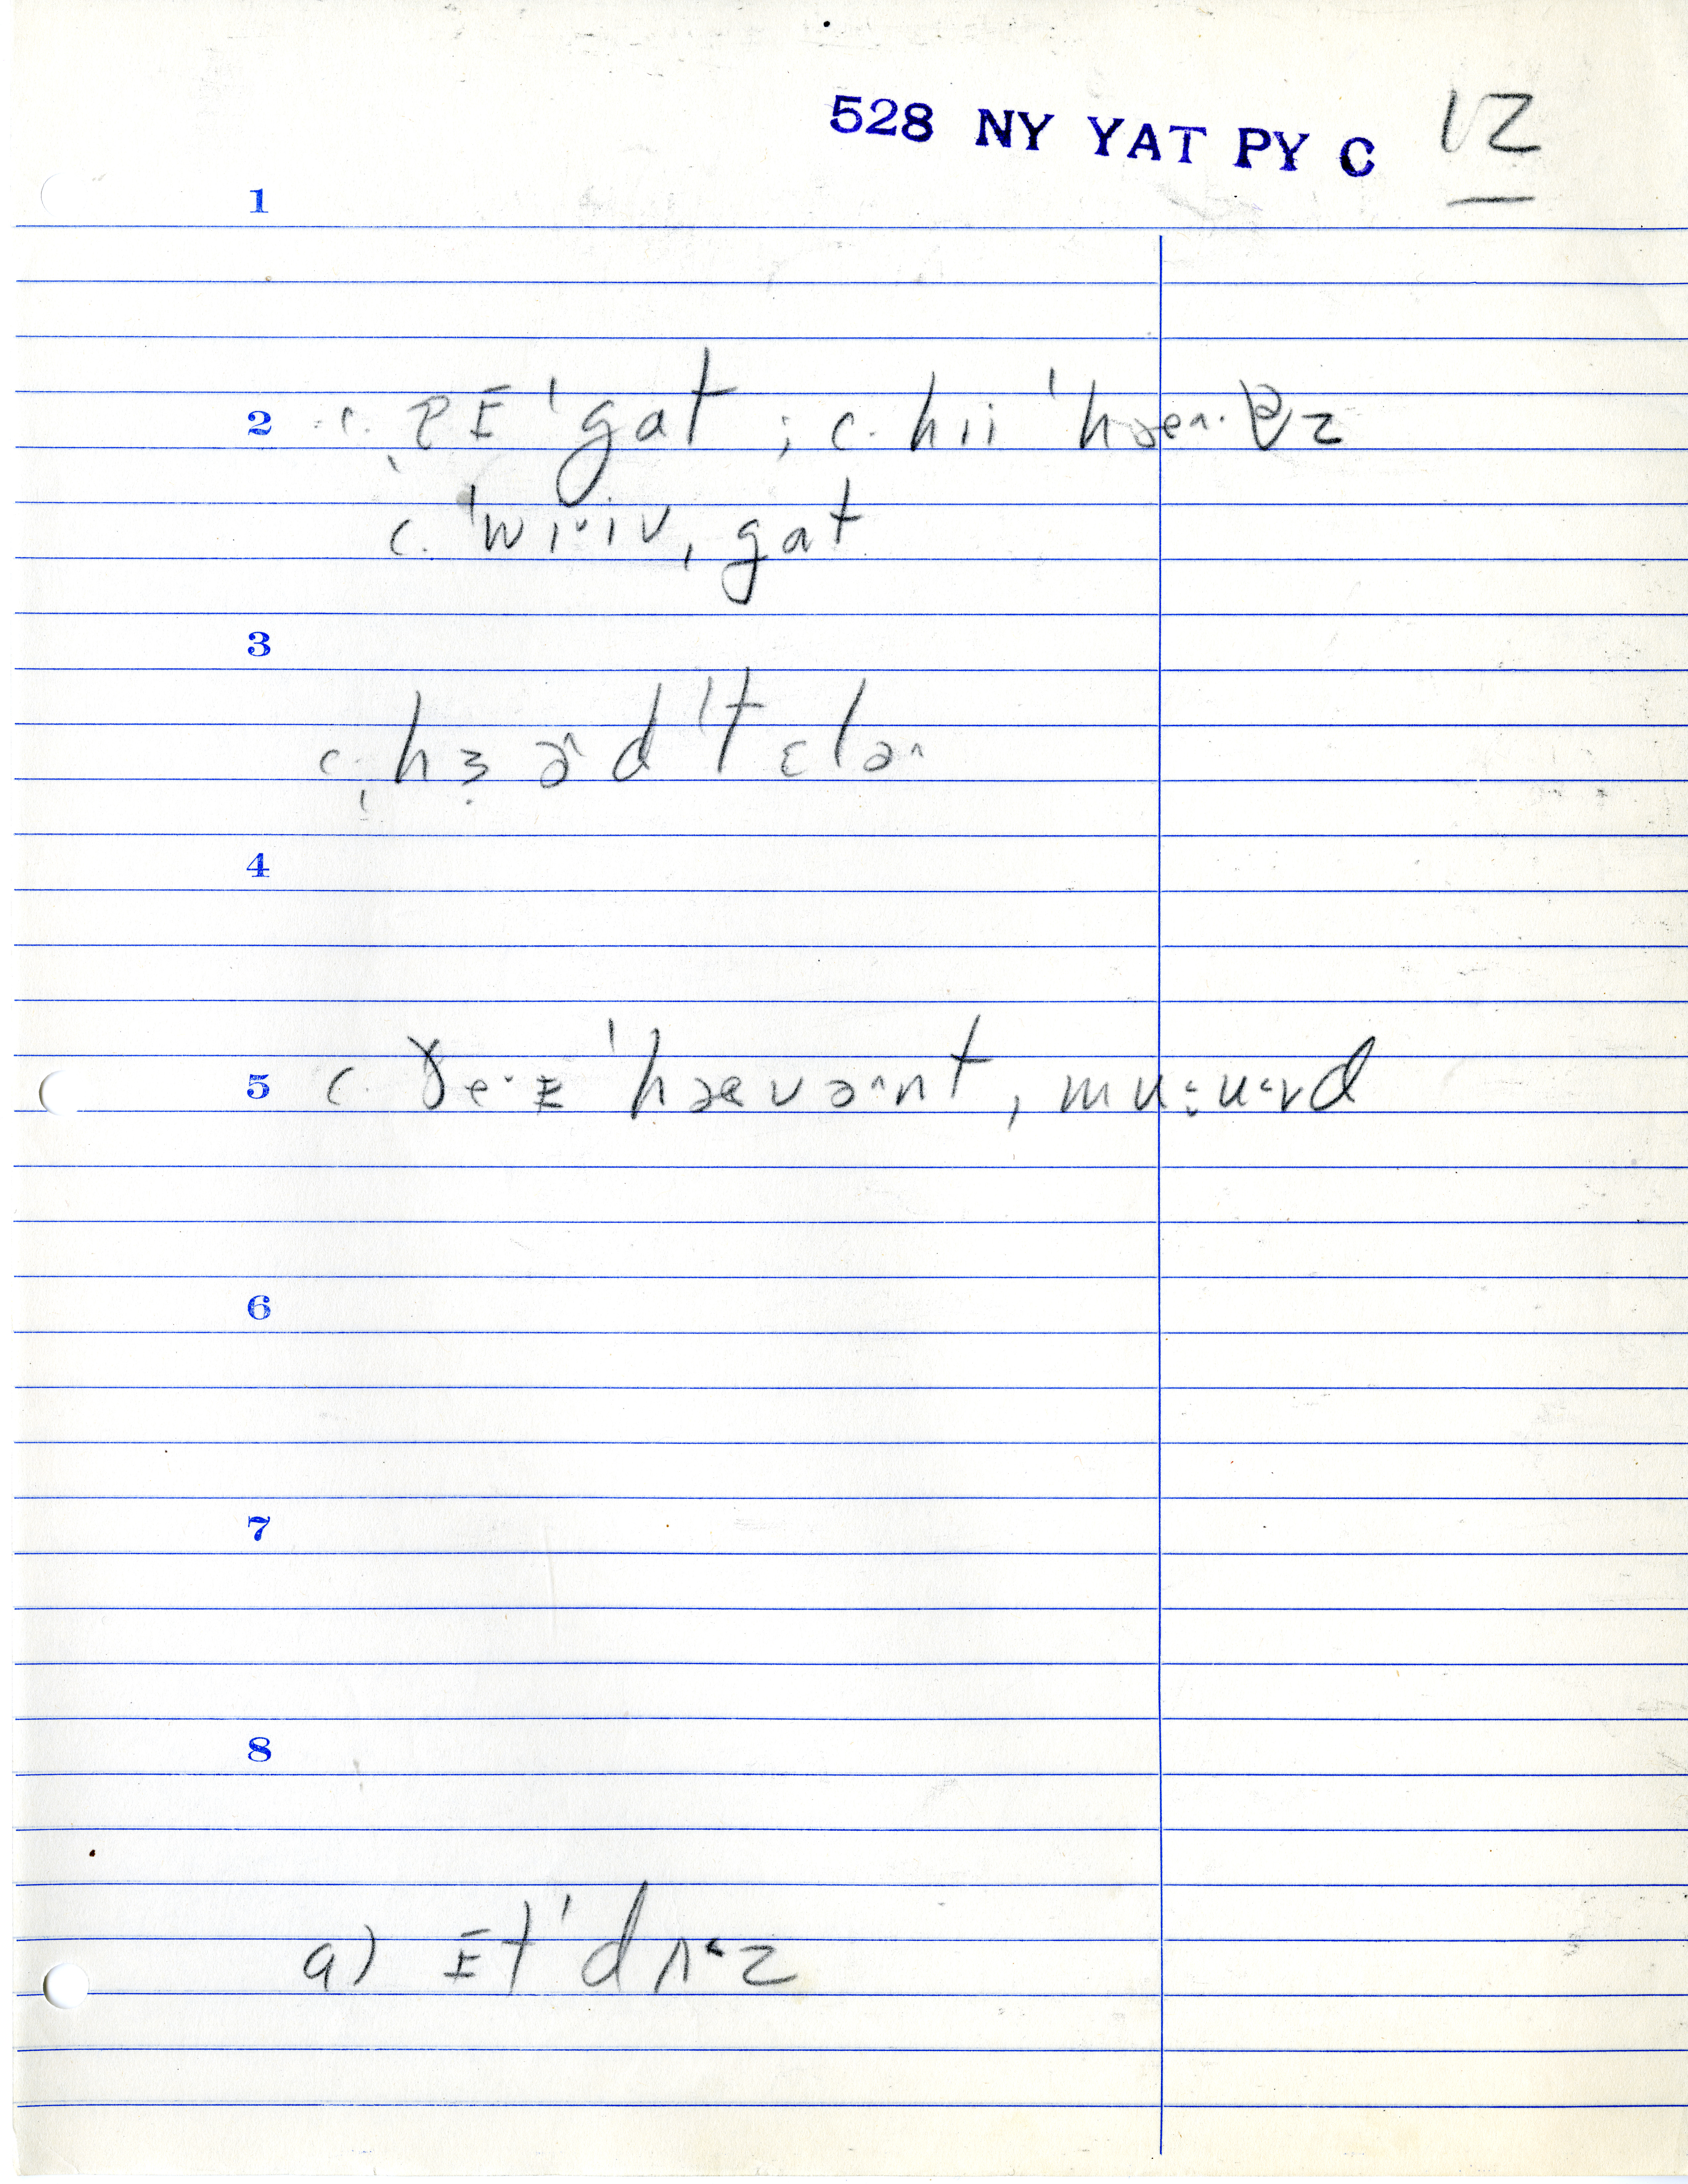 528 NY YAT PY C 12
1
2 c. ɪ ˈgat ; c. hii ˈhɜen.
c. ˈwi·iv, gat
3
c. hɜ ə^d ˈtɛlə^
4
5 c. ɣe·ɪ ˈhaevə^nt, mu:u·vd
6
7
8
a) ɪt ˈdʌ·z